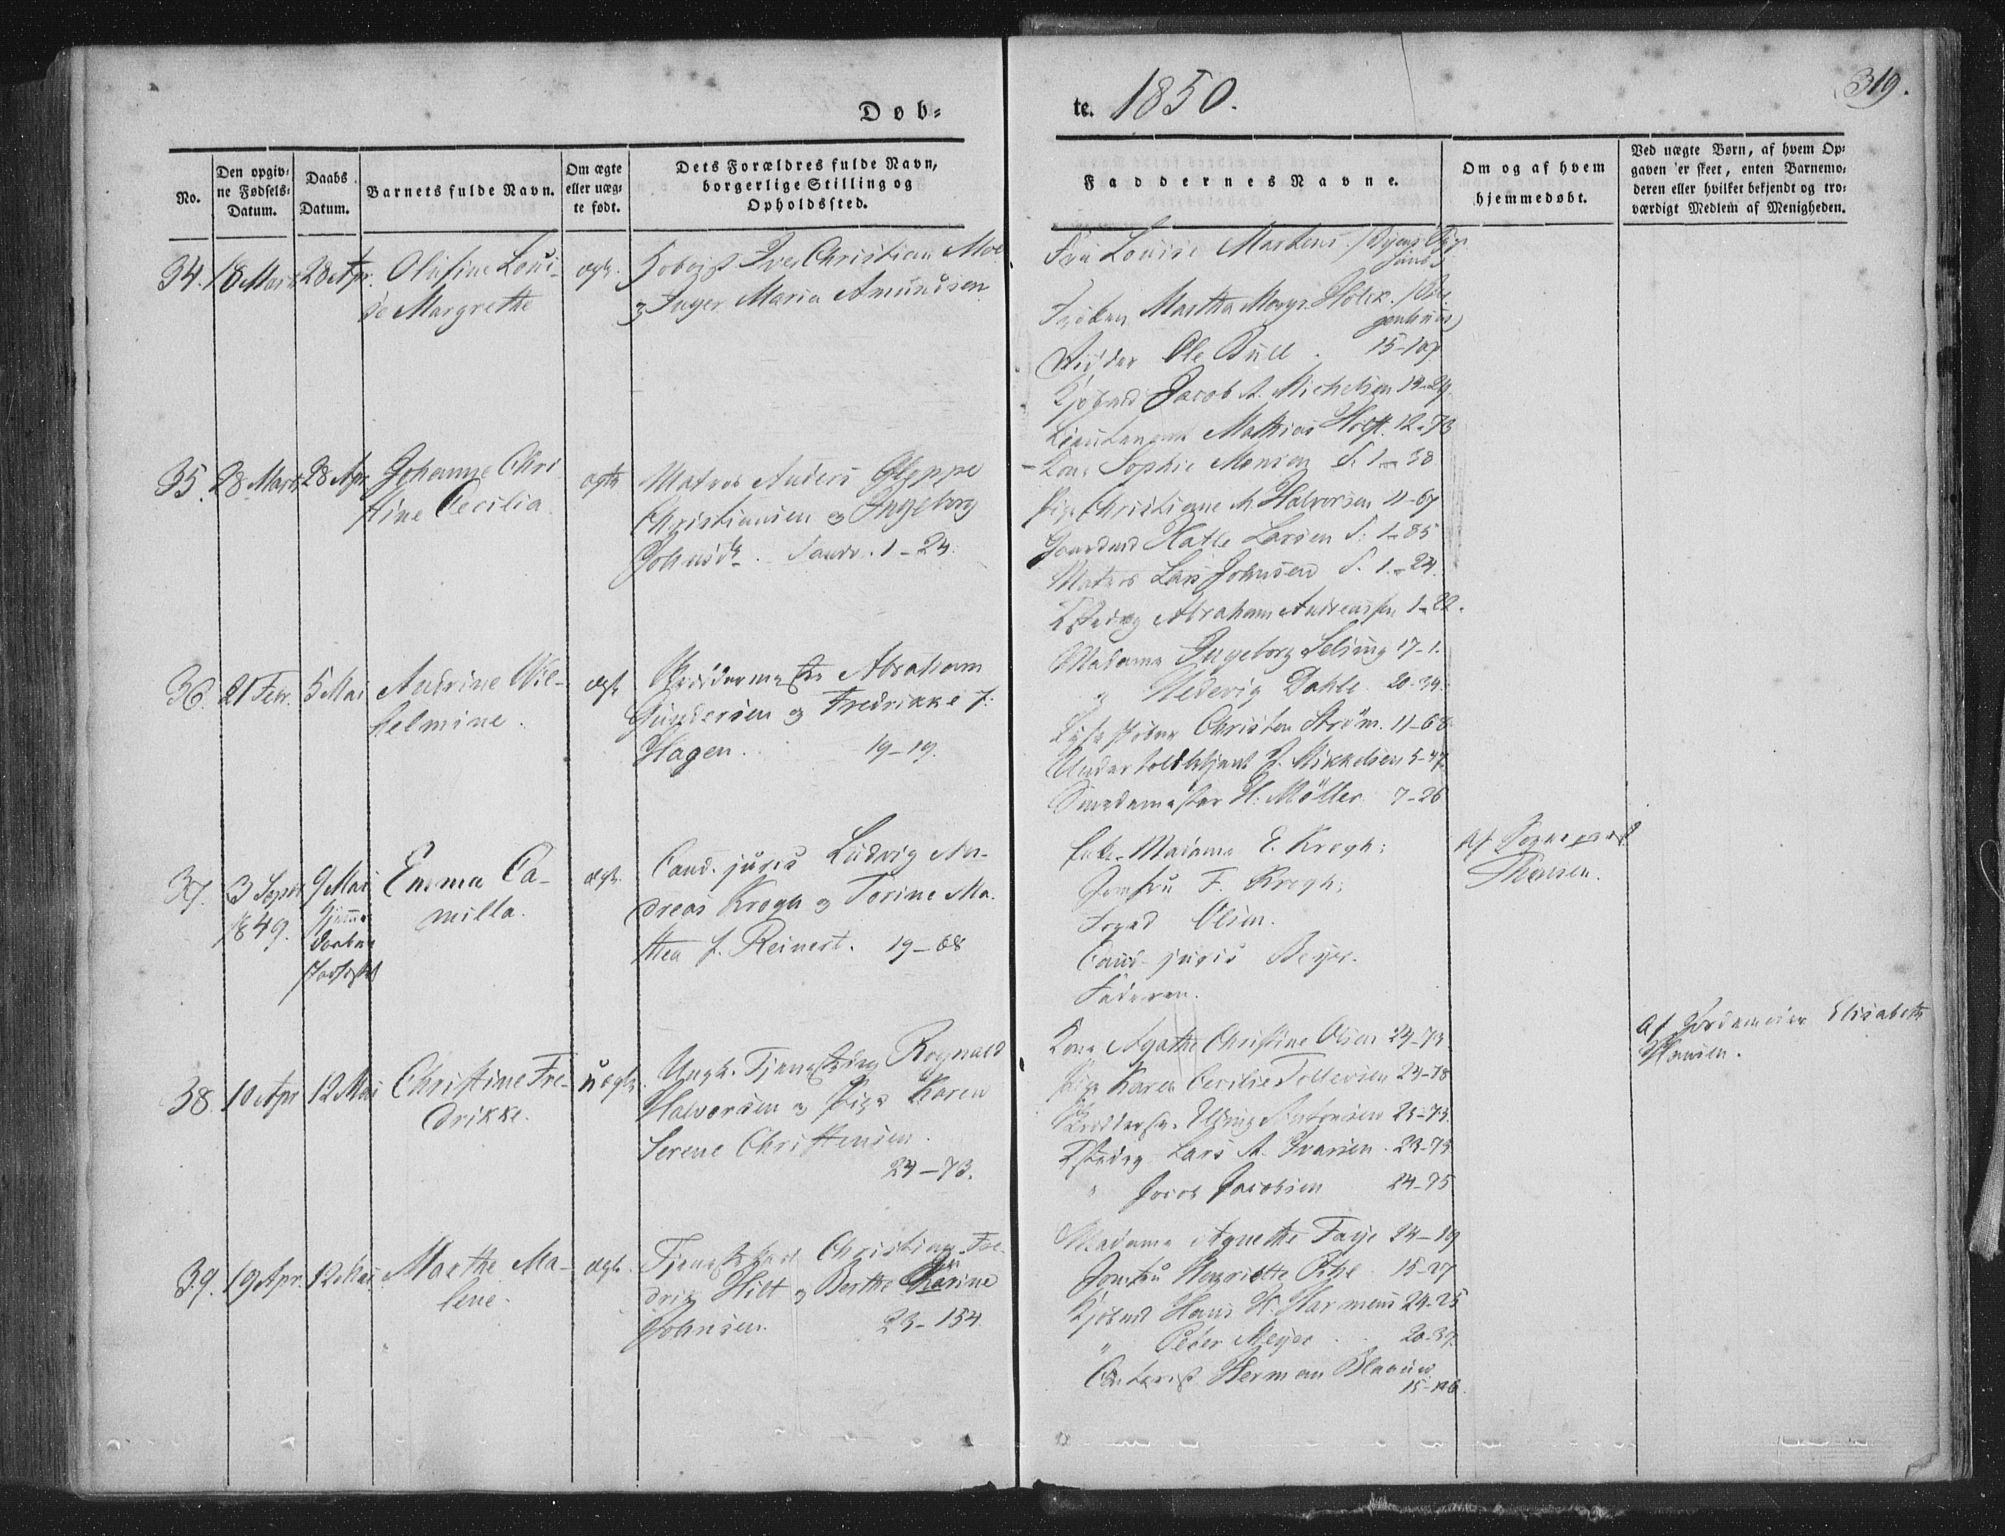 Døb-
te. 1850.
319.
No.
Den opgiv-
ne Fødsels-
Datum.
Daabs
Datum.
Barnets fulde Navn.
Om ægte
eller uæg-
te født.
Dets Forældres fulde Navn,
borgerlige Stilling og
Opholdssted.
Faddernes Navne.
Om og af hvem
hjemmedøbt.
Ved uægte Børn, af hvem Op-
gaven er skeet, enten Barnemo-
deren eller hvilket bekjendt og tro-
værdigt Medlem af Menigheden.
34. 18 Marts 28 Apr. Olufine Loui-
se Margrethe
ægte.
Iver Christian Moe
og Inger Maria Amundsen
Fru Louise Martens
Frøken Martha Margr. Holck
Ole Bull. 15-107
Kjøbmd Jacob A. Michelsen 14-29.
Lieutenant Mathias Holst. 12-73
35. 28 Marts 28 Apr. Johanne Chri-
stine Cecilia.
ægte
Matros Anders Gloppe
Christiansen og Ingeborg
Johnsdr. Sandv. 1-24.
Kone Sophie Monsen S. 1-38
Pige Christiane M. Halvorsen 11-67
Gaardmd Hatle Larsen S. 1-85
Matros Lars Johnsen S. 1-24.
Abraham Andreassen 1-22.
36. 21 Febr. 5 Mai Andrine Wil-
helmine.
ægte
Abraham
Gundersen og Fredrikke f.
Hagen. 19-19.
Madame Ingeborg Selsing 17-1.
" Hedevig Dahle. 20-34.
Christen Strøm. 11-68
Undertoldbetjent J. Mikkelsen 5-47
Smedemester H. Møller 7-26
37. 3 Septr
1849.
9 Mai
Hjemme-
daaben
stadfæstet
Emma Ca-
milla.
ægte.
Cand. juris Ludvig An-
dreas Krogh og Torine Ma-
thea f. Reinert. 19-68
Madame E. Krogh;
Jomfru F. Krogh;
Foged Olsen.
Cand. juris Beyer.
Faderen.
Af Sognepræst
38. 10 Apr 12 Mai Christine Fre-
drikke.
uægte.
Ungk. Rognald
Halvorsen og Pige Karen
Serene Christensen.
24-73.
Kone Agathe Christine Olsen 24-73
Pige Karen Cecilie Tollevsen 24-78
23-73.
Lars A. Ivarsen. 23-73
" Jacob Jacobsen 24-75
Af Jordemoder Elisabeth
Hansen.
39. 19 Apr. 12 Mai Marthe Ma-
lene.
ægte.
Christian Fre-
drik Hilt og Berthe Karine
Johnsen. 23-154.
Madame Agnethe Faye 24-19
Jomfru Henriette 15-27
Kjøbmd Hans H. Harmens 24-25
" Peter Meyer. 20-39.
Herman Blaauw
15-106.